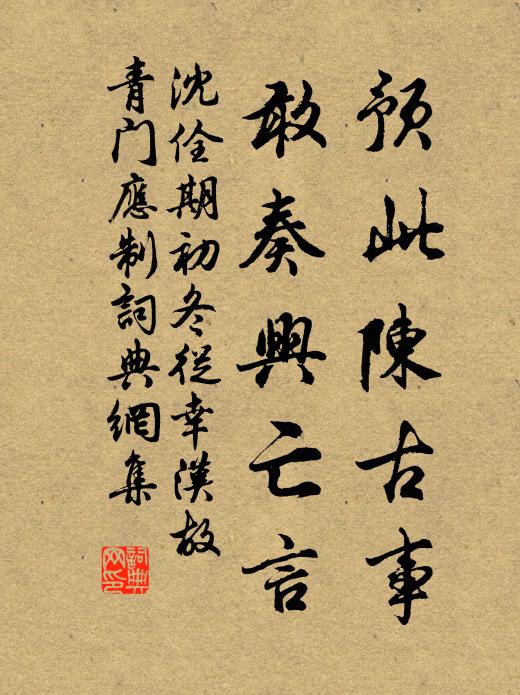 預此陳古事
敢奏興亡言
沈佺期初冬從幸漢故
青門應制詞典網集
詞典
网印